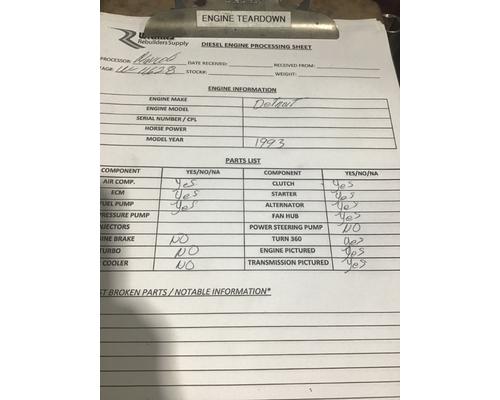 ENGINE TEARDOWN
Rebuilders Supply
DIESEL ENGINE PROCESSING SHEET
PROCESSOR: DATE RECEIVED: RECEIVED FROM:
AGE: STOCK#: WEIGHT:
ENGINE INFORMATION
ENGINE MAKE Detroit
ENGINE MODEL
SERIAL NUMBER / CPL
HORSE POWER
MODEL YEAR 1993
PARTS LIST
COMPONENT YES/NO/NA COMPONENT YES/NO/NA
AIR COMP. Yes CLUTCH Yes
ECM Yes STARTER Yes
FUEL PUMP Yes ALTERNATOR Yes
PRESSURE PUMP FAN HUB Yes
NJECTORS POWER STEERING PUMP NO
INE BRAKE NO TURN 360 Yes
TURBO NO ENGINE PICTURED Yes
COOLER NO TRANSMISSION PICTURED Yes
ST BROKEN PARTS / NOTABLE INFORMATION*